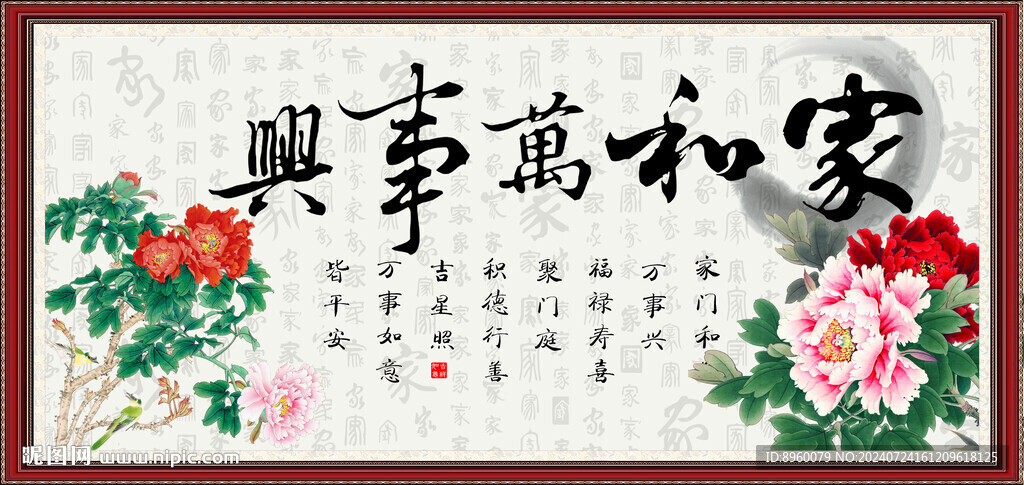 家和萬事興
家门和
万事兴
福禄寿喜
聚门庭
积德行善
吉星照
万事如意
皆平安
昵图网 www.nipic.com
ID:8960079 NO:20240724161209618125